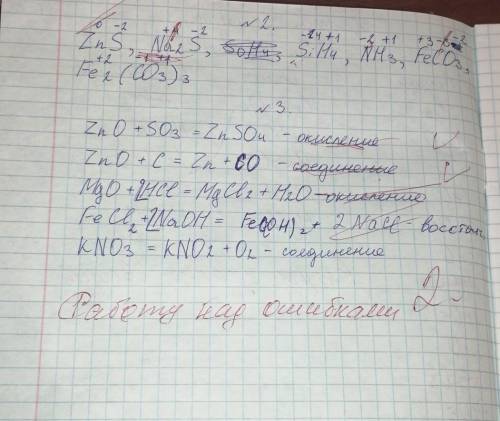 №2.
ZnS, Na2S, SiH4, NH3, FeCO3,
Fe2(CO3)3
№3.
ZnO + SO3 = ZnSO4 - окисление
ZnO + C = Zn + CO - соединение
MgO + 2HCl = MgCl2 + H2O - окисление
FeCl2 + 2NaOH = Fe(OH)2 + 2NaCl - восстан.
KNO3 = KNO2 + O2 - соединение
Работу над ошибками 2